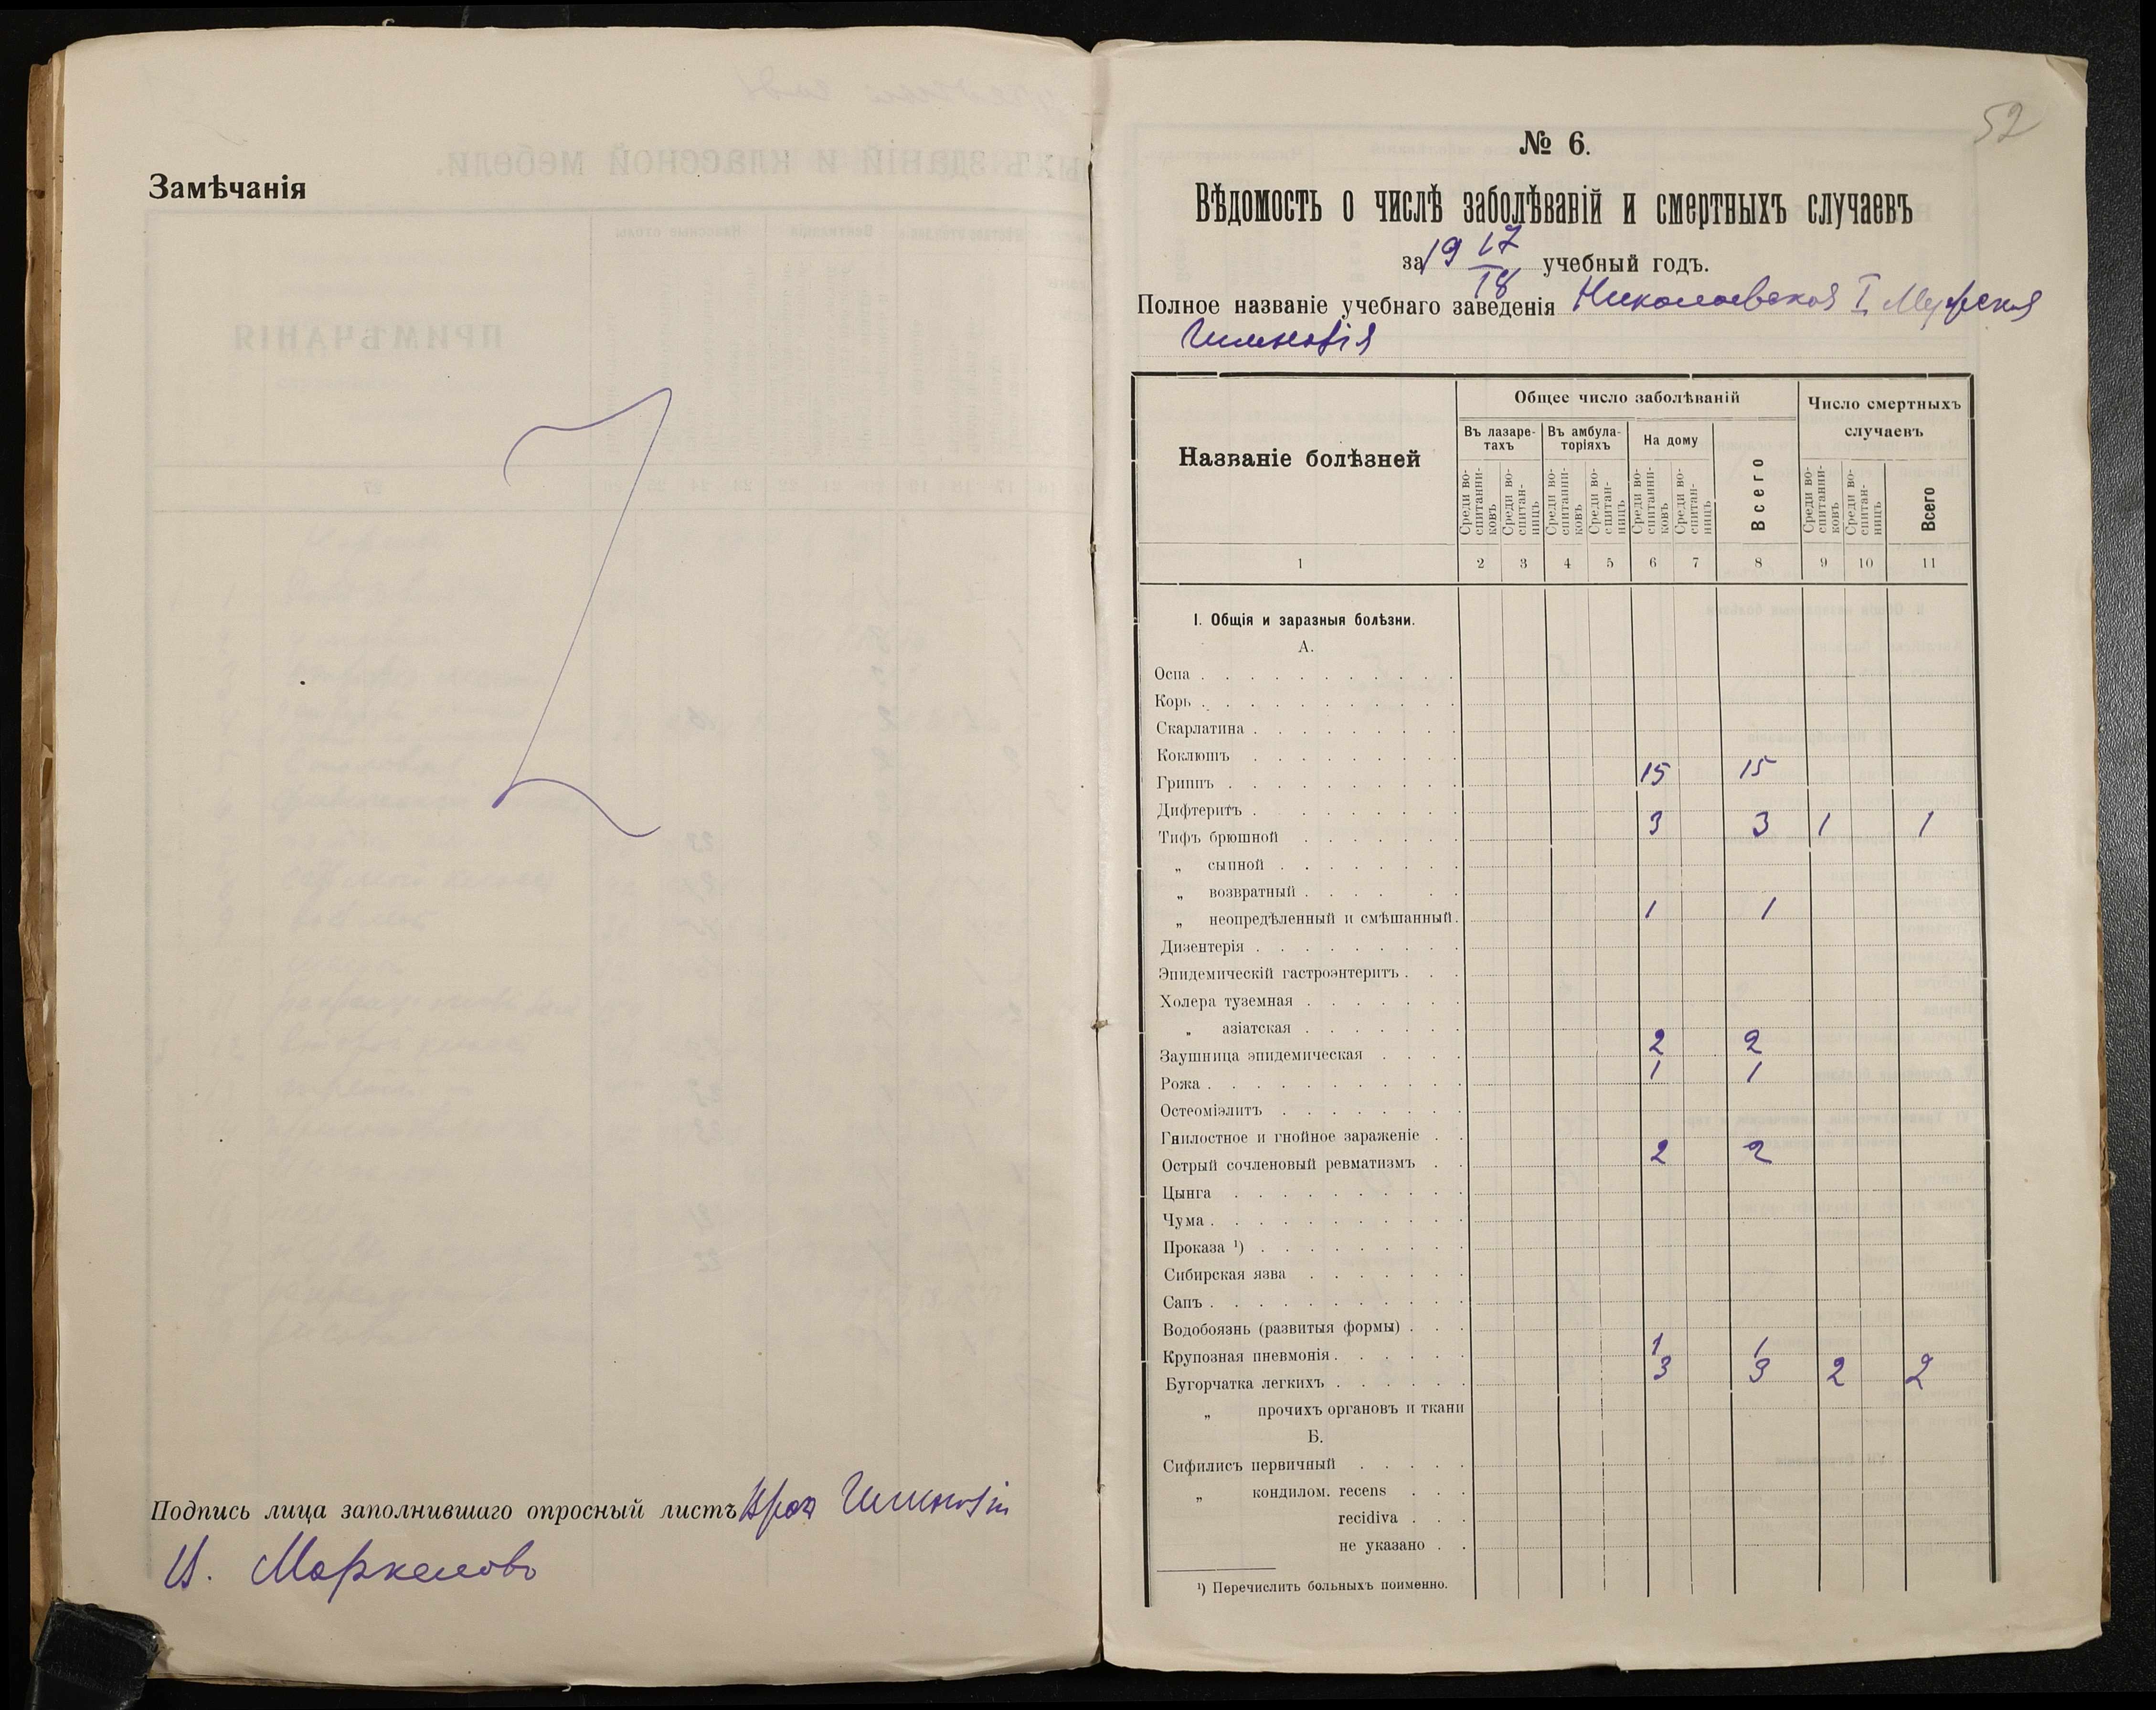 Замѣчанія
Подпись лица заполнившаго опросный листъ Врач Гимназіи
И. Маркелово
52
№ 6.
Вѣдомость о числѣ заболѣваній и смертныхъ случаевъ
за 19 17/18 учебный годъ.
Полное названіе учебнаго заведенія Николаевская I Мужская
Гимназія
Названіе болѣзней
Общее число заболѣваній
Число смертныхъ случаевъ
Въ лазаре-тахъ
Въ амбула-торіяхъ
На дому
Всего
Среди во-спитанни-ковъ
Среди во-спитан-ницъ
Среди во-спитанни-ковъ
Среди во-спитан-ницъ
Среди во-спитанни-ковъ
Среди во-спитан-ницъ
Среди во-спитанни-ковъ
Среди во-спитан-ницъ
Всего
1 2 3 4 5 6 7 8 9 10 11
I. Общія и заразныя болѣзни.
А.
Оспа
Корь
Скарлатина
Коклюшъ
Гриппъ 15 15
Дифтеритъ
Тифъ брюшной 3 3 1 1
„ сыпной
„ возвратный
„ неопредѣленный и смѣшанный 1 1
Дизентерія
Эпидемическій гастроэнтеритъ
Холера туземная
„ азіатская
Заушница эпидемическая 2 2
Рожа 1 1
Остеоміэлитъ
Гнилостное и гнойное зараженіе
Острый сочленовый ревматизмъ 2 2
Цынга
Чума
Проказа ¹)
Сибирская язва
Сапъ
Водобоязнь (развитыя формы)
Крупозная пневмонія 1 1
Бугорчатка легкихъ 3 3 2 2
„ прочихъ органовъ и ткани
Б.
Сифилисъ первичный
„ кондилом. recens
recidiva
не указано
¹) Перечислить больныхъ поименно.